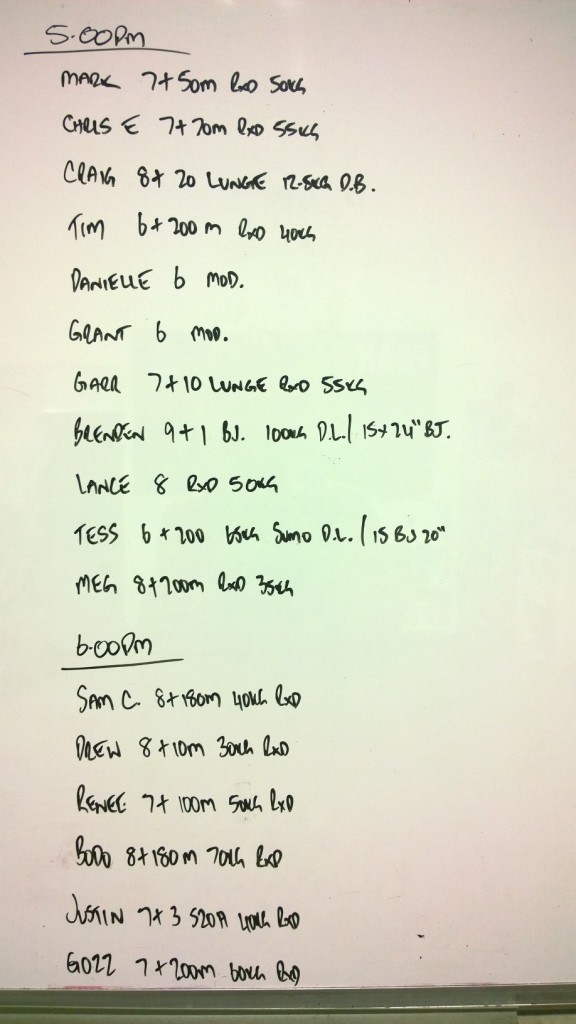 5.00PM
MARK 7+50m RXD 50KG
CHRIS E 7+70m RXD 55KG
CRAIG 8+ 20 LUNGE 12.5KG D.B.
TIM 6+200m RXD 40KG
DANIELLE 6 MOD.
GRANT 6 MOD.
GARR 7+10 LUNGE RXD 55KG
BRENDEN 9+1 BJ. 100KG D.L./ 15x24" BJ.
LANCE 8 RXD 50KG
TESS 6+200 65KG SUMO D.L./ 15 BJ 20"
MEG 8+200m RXD 35KG
6.00PM
SAM C. 8+180m 40KG RXD
DREW 8+10m 30KG RXD
RENEE 7+ 100m 50KG RXD
BODO 8+180m 70KG RXD
JUSTIN 7+3 40KG RXD
GOZZ 7+200m 60KG RXD